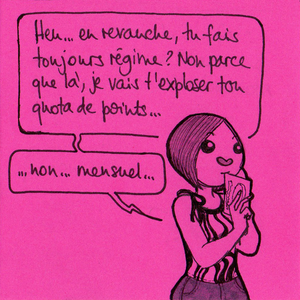 Heu... en revanche, tu fais
toujours régime? Non parce
que là, je vais t'exploser ton
quota de points...
...non... mensuel...